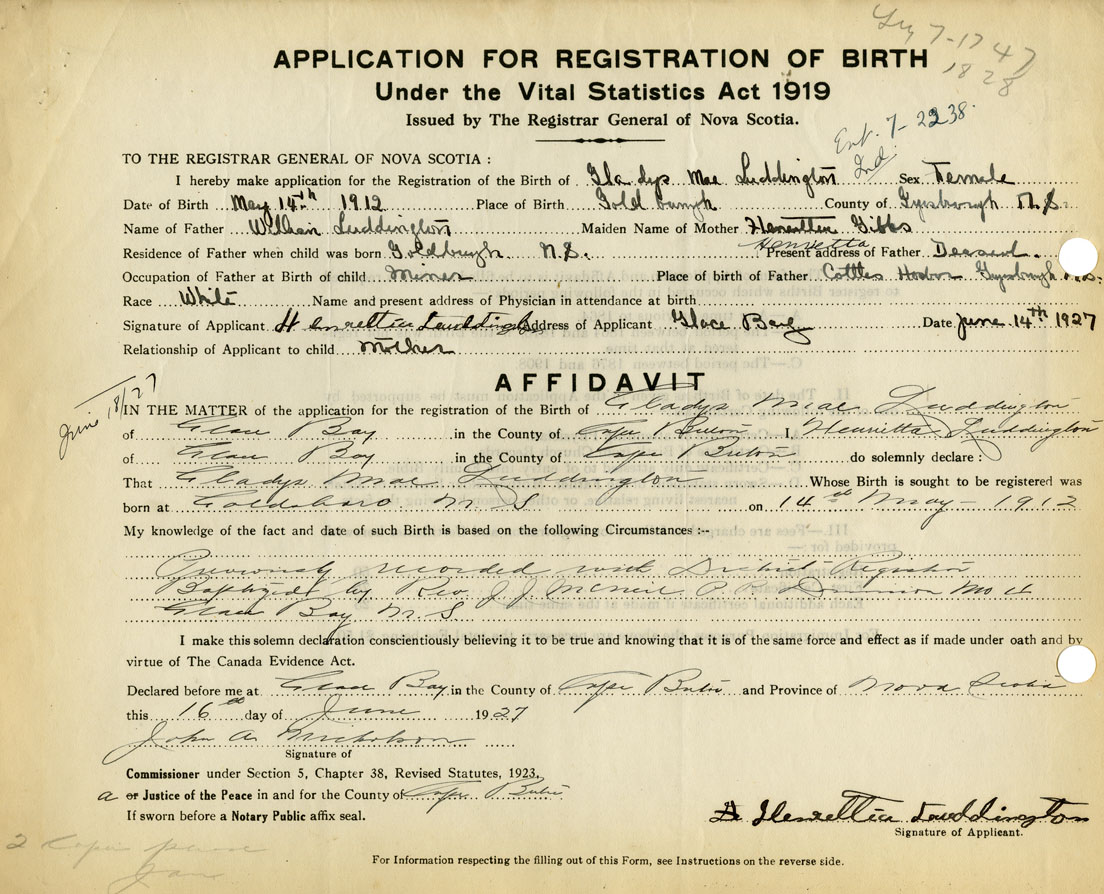 7-17 47
1828
APPLICATION FOR REGISTRATION OF BIRTH
Under the Vital Statistics Act 1919
Issued by The Registrar General of Nova Scotia.
Ent. 7-2238.
Ind.
TO THE REGISTRAR GENERAL OF NOVA SCOTIA :
I hereby make application for the Registration of the Birth of Gladys Mae Luddington Sex Female
Date of Birth May 14th 1912 Place of Birth Goldburgh County of Gysburogh N.S.
Name of Father William Luddington Maiden Name of Mother Henrietta Gibbs
Henrietta
Residence of Father when child was born Goldburgh. N.S. Present address of Father Decesd.
Occupation of Father at Birth of child Miner Place of Birth of Father Cottles Harbor Gysburgh N.S.
Race White Name and present address of Physician in attendance at birth
Signature of Applicant Henrettia Lauddington Address of Applicant Glace Bay Date June 14th 1927
Relationship of Applicant to child Mother
AFFIDAVIT
June 18/27
IN THE MATTER of the application for the registration of the Birth of Gladys Mae Luddington
of Glace Bay in the County of Cape Breton I, Henrietta Luddington
of Glace Bay in the County of Cape Breton do solemnly declare :
That Gladys Mae Luddington Whose Birth is sought to be registered was
born at Goldsboro N.S on 14th May - 1912
My knowledge of the fact and date of such Birth is based on the following Circumstances :--
Previously recorded with District Registrar
Baptized by Rev. J. J. McNeil P. P. Dominion No 4
Glace Bay N.S
I make this solemn declaration conscientiously believing it to be true and knowing that it is of the same force and effect as if made under oath and by
virtue of The Canada Evidence Act.
Declared before me at Glace Bay in the County of Cape Breton and Province of Nova Scotia
this 16th day of June 1927
John A. Nicholson
Signature of
Commissioner under Section 5, Chapter 38, Revised Statutes, 1923.
a or Justice of the Peace in and for the County of Cape Breton
If sworn before a Notary Public affix seal.
H Henrettia Lauddington
Signature of Applicant.
2 Copies please
For Information respecting the filling out of this Form, see Instructions on the reverse side.